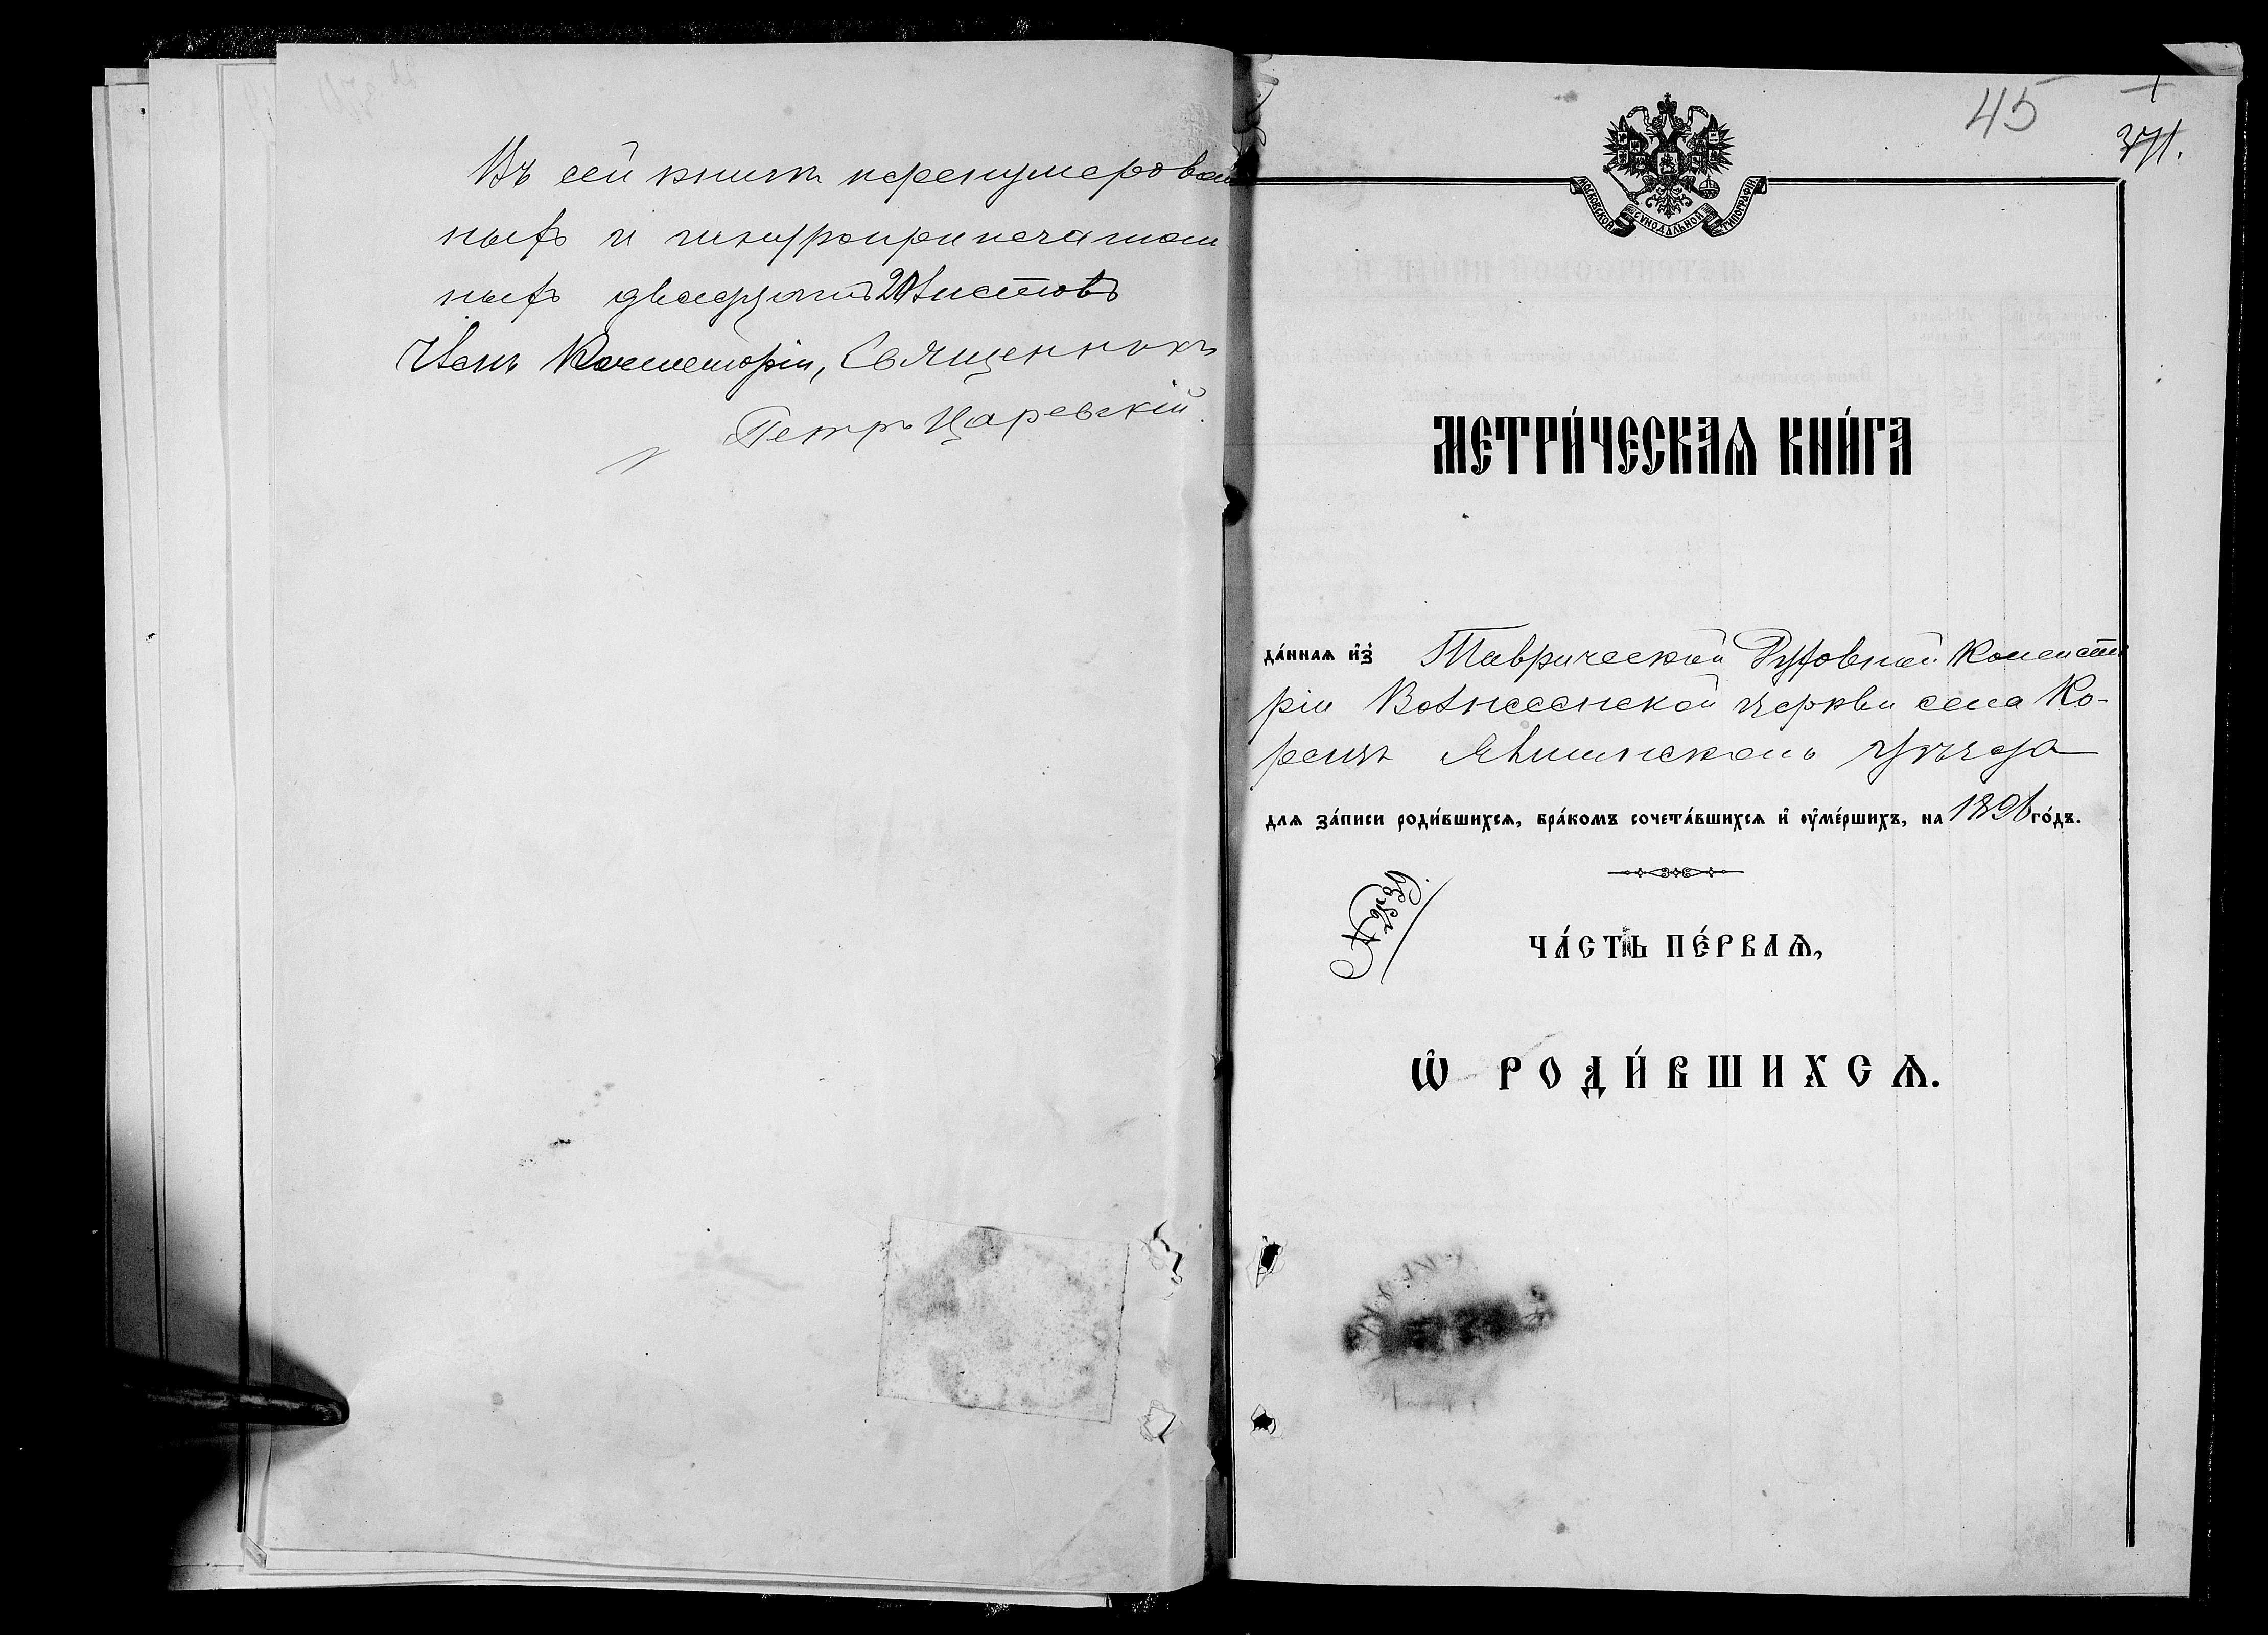 Въ сей книгѣ перенумерован
ныхъ и шнуроприпечатан
ныхъ двадцать 20 листовъ
Членъ Консисторіи, Священникъ
Петръ Царевскій.
45
371.
МОСКОВСКОЙ СѴНОДАЛЬНОЙ ТИПОГРАФІИ
МЕТРИ́ЧЕСКАѦ КНИ́ГА
да́ннаѧ и҆з̾ Таврической Духовной Консисто
ріи Вознесенской церкви села Ко-
рениха
уѣзда
длѧ за́писи роди́вшихсѧ, бра́комъ сочета́вшихсѧ и҆ оу҆ме́ршихъ, на 1896 го́дъ.
ЧА́СТЬ ПЕ́РВАѦ,
Ѡ҆ РОДИ́ВШИХСѦ.